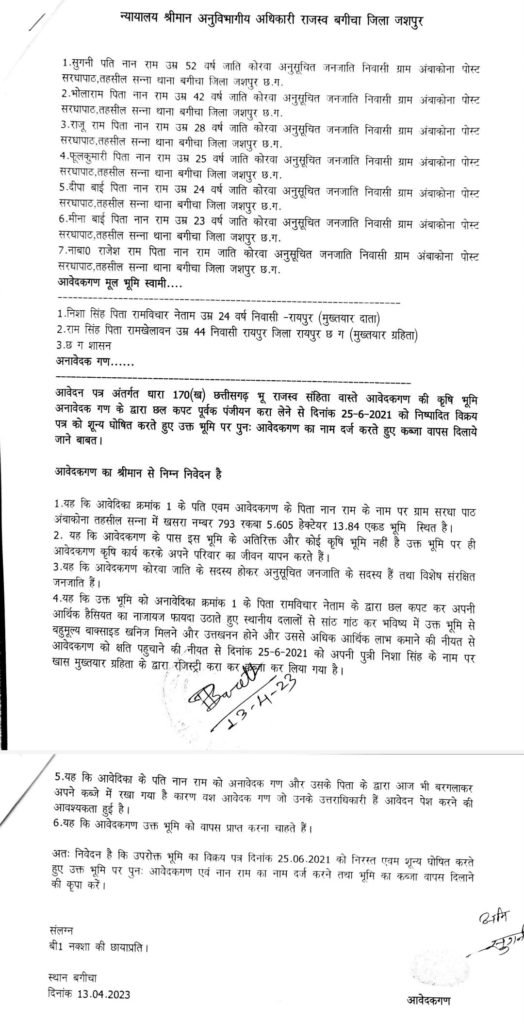 न्यायालय श्रीमान अनुविभागीय अधिकारी राजस्व बगीचा जिला जशपुर
1.सुगनी पति नान राम उम्र 52 वर्ष जाति कोरवा अनुसूचित जनजाति निवासी ग्राम अंबाकोना पोस्ट
सरधापाठ,तहसील सन्ना थाना बगीचा जिला जशपुर छ.ग.
2.भोलाराम पिता नान राम उम्र 42 वर्ष जाति कोरवा अनुसूचित जनजाति निवासी ग्राम अंबाकोना पोस्ट
सरधापाठ,तहसील सन्ना थाना बगीचा जिला जशपुर छ.ग.
3.राजू राम पिता नान राम उम्र 28 वर्ष जाति कोरवा अनुसूचित जनजाति निवासी ग्राम अंबाकोना पोस्ट
सरधापाठ,तहसील सन्ना थाना बगीचा जिला जशपुर छ.ग.
4.फूलकुमारी पिता नान राम उम्र 25 वर्ष जाति कोरवा अनुसूचित जनजाति निवासी ग्राम अंबाकोना पोस्ट
सरधापाठ,तहसील सन्ना थाना बगीचा जिला जशपुर छ.ग.
5.दीपा बाई पिता नान राम उम्र 24 वर्ष जाति कोरवा अनुसूचित जनजाति निवासी ग्राम अंबाकोना पोस्ट
सरधापाठ,तहसील सन्ना थाना बगीचा जिला जशपुर छ.ग.
6.मीना बाई पिता नान राम उम्र 23 वर्ष जाति कोरवा अनुसूचित जनजाति निवासी ग्राम अंबाकोना पोस्ट
सरधापाठ,तहसील सन्ना थाना बगीचा जिला जशपुर छ.ग.
7.नाबा0 राजेश राम पिता नान राम जाति कोरवा अनुसूचित जनजाति निवासी ग्राम अंबाकोना पोस्ट
सरधापाठ,तहसील सन्ना थाना बगीचा जिला जशपुर छ.ग.
आवेदकगण मूल भूमि स्वामी....
1.निशा सिंह पिता रामविचार नेताम उम्र 24 वर्ष निवासी -रायपुर (मुख्तयार दाता)
2.राम सिंह पिता रामखेलावन उम्र 44 निवासी रायपुर जिला रायपुर छ ग (मुख्तयार ग्रहिता)
3.छ ग शासन
अनावेदक गण......
आवेदन पत्र अंतर्गत धारा 170(ख) छत्तीसगढ़ भू राजस्व संहिता वास्ते आवेदकगण की कृषि भूमि
अनावेदक गण के द्वारा छल कपट पूर्वक पंजीयन करा लेने से दिनांक 25-6-2021 को निष्पादित विक्रय
पत्र को शून्य घोषित करते हुए उक्त भूमि पर पुनः आवेदकगण का नाम दर्ज करते हुए कब्जा वापस दिलाये
जाने बाबत।
आवेदकगण का श्रीमान से निम्न निवेदन है
1.यह कि आवेदिका क्रमांक 1 के पति एवम आवेदकगण के पिता नान राम के नाम पर ग्राम सरधा पाठ
अंबाकोना तहसील सन्ना में खसरा नम्बर 793 रकबा 5.605 हेक्टेयर 13.84 एकड भूमि स्थित है।
2. यह कि आवेदकगण के पास इस भूमि के अतिरिक्त और कोई कृषि भूमि नहीं है उक्त भूमि पर ही
आवेदकगण कृषि कार्य करके अपने परिवार का जीवन यापन करते हैं।
3.यह कि आवेदकगण कोरवा जाति के सदस्य होकर अनुसूचित जनजाति के सदस्य हैं तथा विशेष संरक्षित
जनजाति हैं।
4.यह कि उक्त भूमि को अनावेदिका क्रमांक 1 के पिता रामविचार नेताम के द्वारा छल कपट कर अपनी
आर्थिक हैसियत का नाजायज फायदा उठाते हुए स्थानीय दलालों से सांठ गांठ कर भविष्य में उक्त भूमि से
बहुमूल्य बाक्साइड खनिज मिलने और उत्तखनन होने और उससे अधिक आर्थिक लाभ कमाने की नीयत से
आवेदकगण को क्षति पहुचाने की नीयत से दिनांक 25-6-2021 को अपनी पुत्री निशा सिंह के नाम पर
खास मुख्तयार ग्रहिता के द्वारा रजिस्ट्री करा कर कब्जा कर लिया गया है।
13-4-23
5.यह कि आवेदिका के पति नान राम को अनावेदक गण और उसके पिता के द्वारा आज भी बरगलाकर
अपने कब्जे में रखा गया है कारण वश आवेदक गण जो उनके उत्तराधिकारी हैं आवेदन पेश करने की
आवश्यकता हुई है।
6.यह कि आवेदकगण उक्त भूमि को वापस प्राप्त करना चाहते हैं।
अतः निवेदन है कि उपरोक्त भूमि का विक्रय पत्र दिनांक 25.06.2021 को निरस्त एवम शून्य घोषित करते
हुए उक्त भूमि पर पुनः आवेदकगण एवं नान राम का नाम दर्ज करने तथा भूमि का कब्जा वापस दिलाने
की कृपा करें।
संलग्न
बी1 नक्शा की छायाप्रति।
स्थान बगीचा
दिनांक 13.04.2023
आवेदकगण